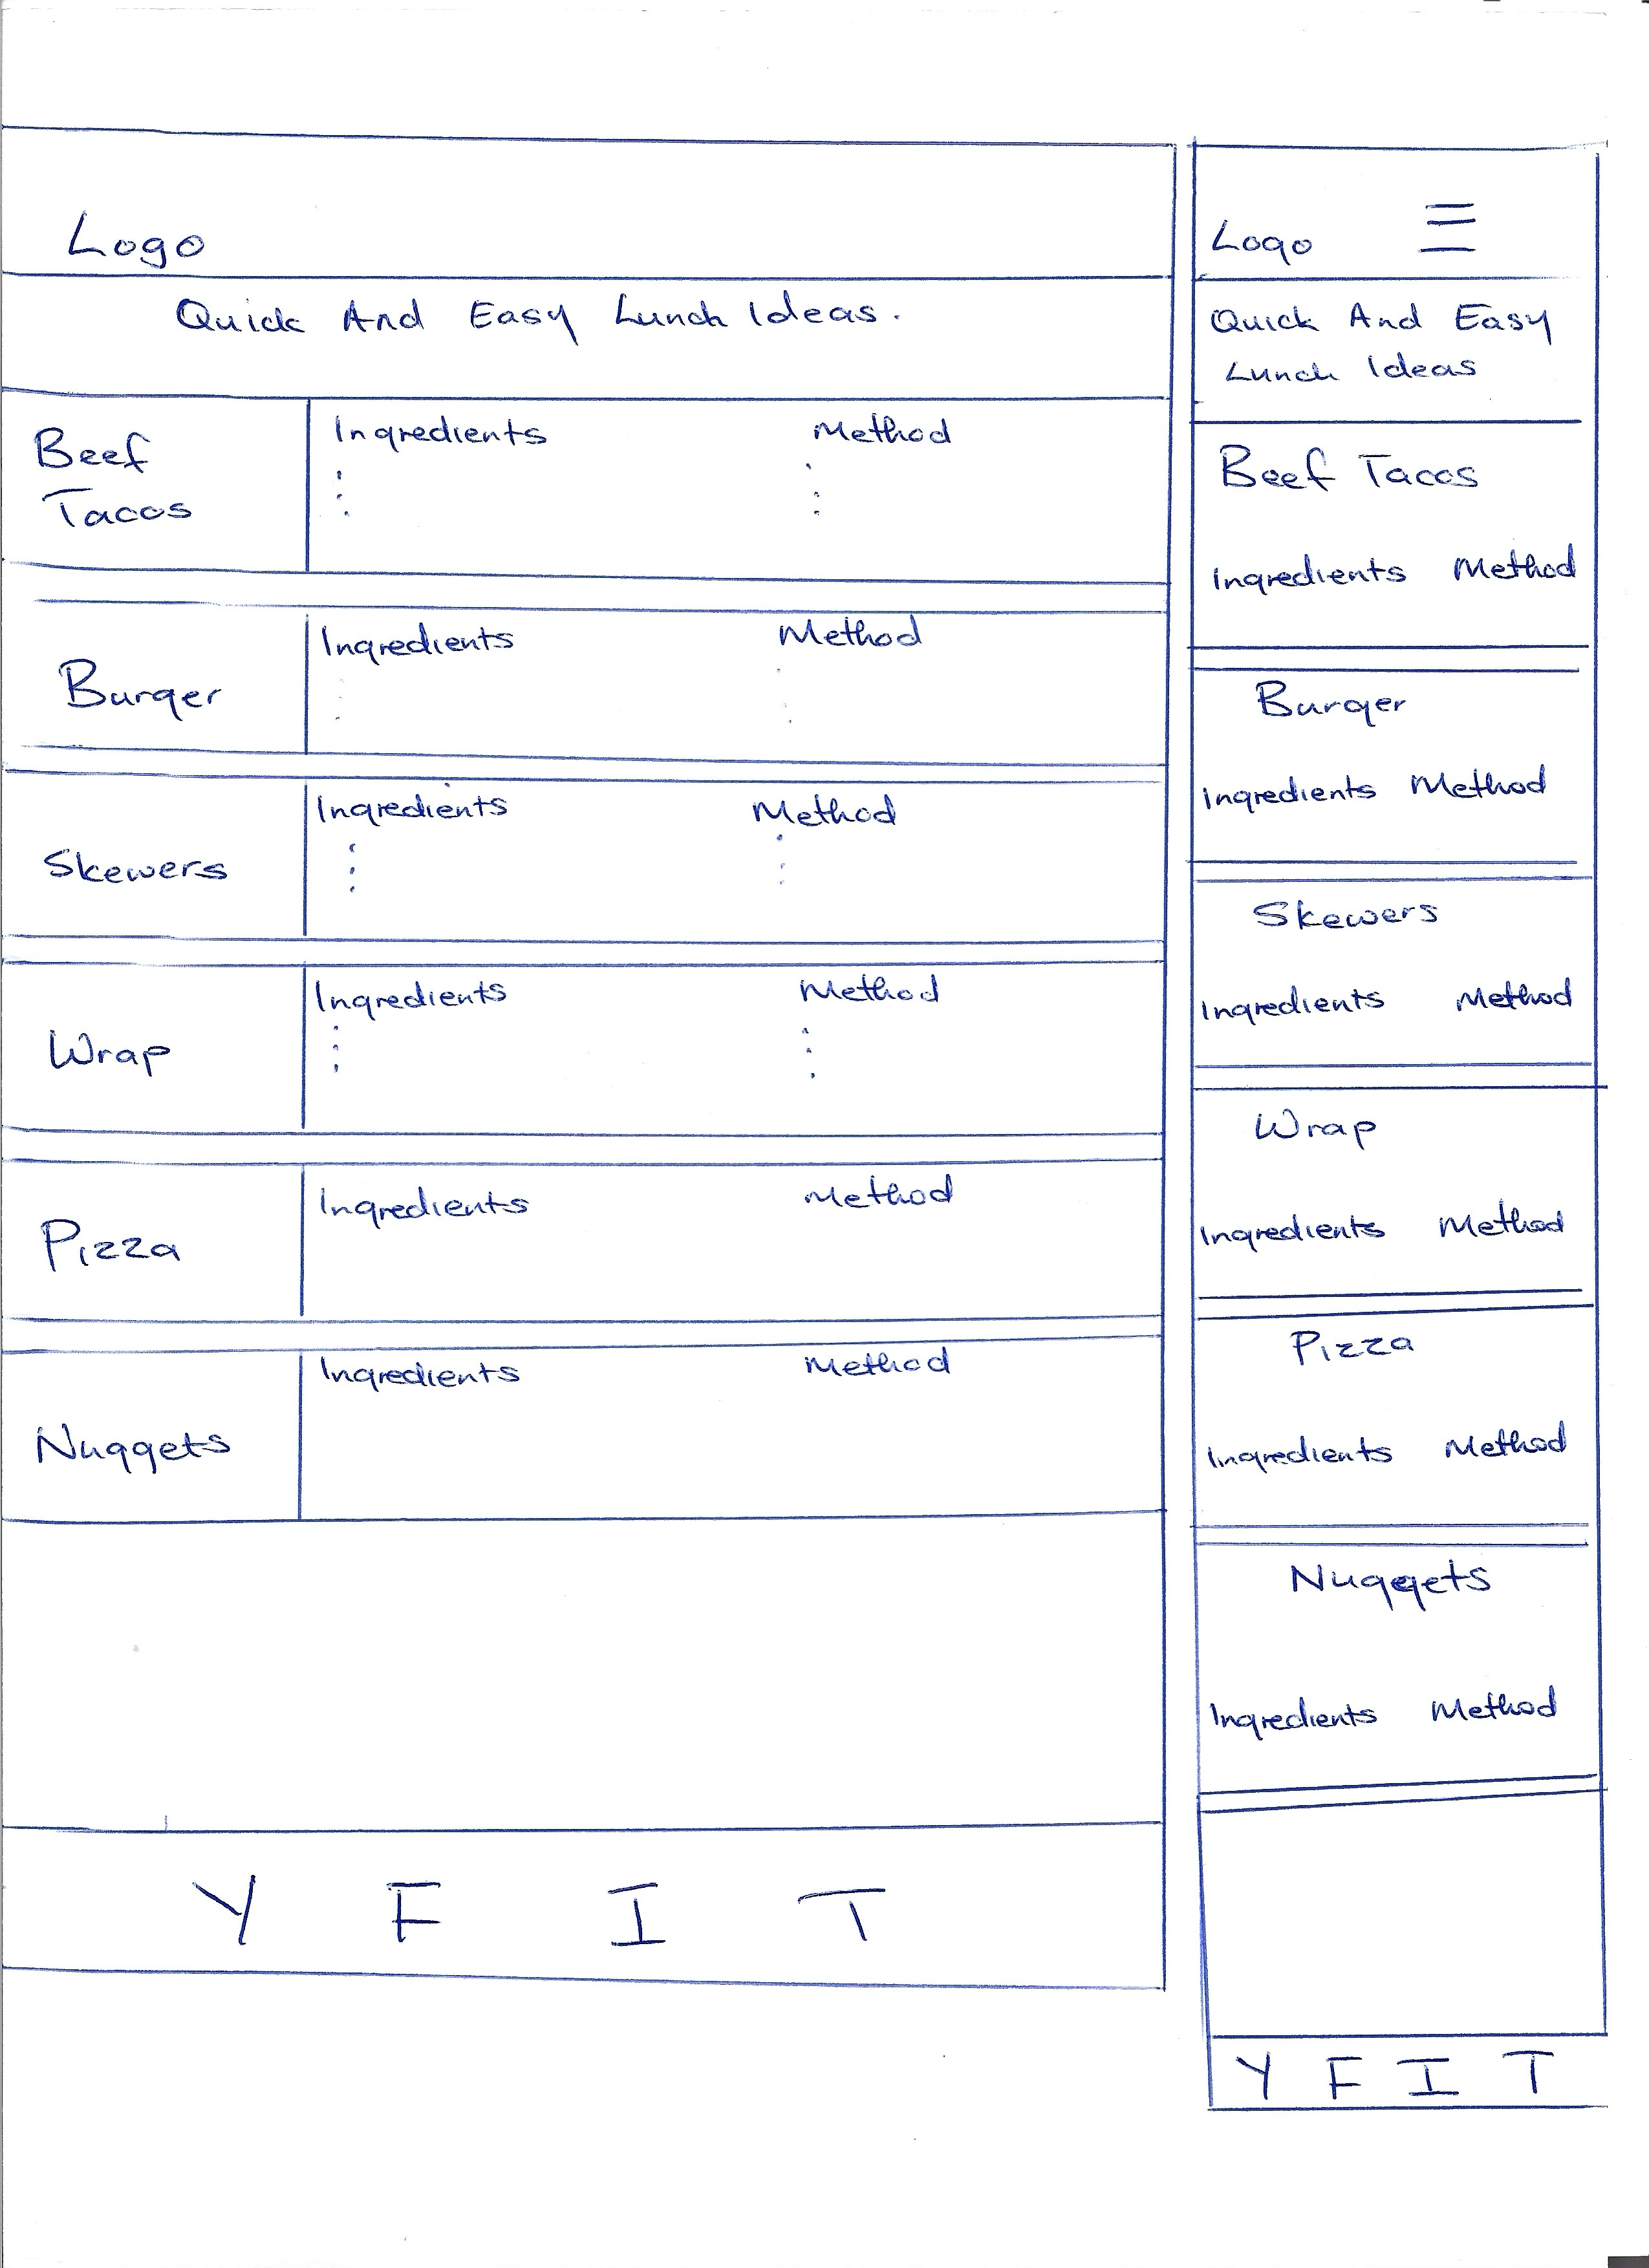 Logo
Quick And Easy Lunch Ideas.
Beef
Tacos
Ingredients Method
Burger
Ingredients Method
Skewers
Ingredients Method
Wrap
Ingredients Method
Pizza
Ingredients Method
Nuggets
Ingredients Method
Y F I T
Logo
Quick And Easy
Lunch Ideas
Beef Tacos
Ingredients Method
Burger
Ingredients Method
Skewers
Ingredients Method
Wrap
Ingredients Method
Pizza
Ingredients Method
Nuggets
Ingredients Method
Y F I T